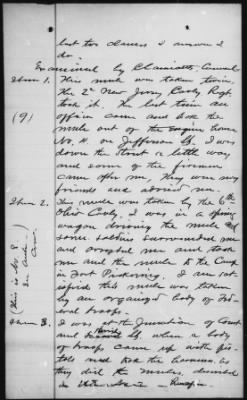 last two clauses I answer I
do.
Examined by Claimants Counsel
Item 1. This mule was taken twice.
The 2nd New Jersey Cavly Regt
(9) took it. The last time an
officer came and took the
mule out of the Engine house
No. 4. on Jefferson St. I was
down the street a little way
and some of the firemen
came after me, They were my
friends and advised me.
Item 2. This mule was taken by the 6th
Ohio Cavly. I was in a spring
wagon driving the mule and
some soldiers surrounded me
and arrested me and took
me and the mule to the Camp
in Fort Pickering. I am sat-
isfied this mule was taken
by an organized body of Fed-
eral troops.
(This is No 8
in
Item 3. I was at the Junction of
and St. when a body
of troops came up with pis-
tols and took the
they did the mules, described
in Item No 2